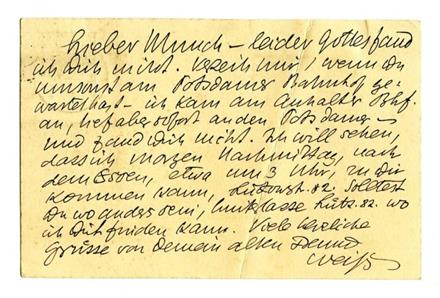 Lieber Munch – leider Gottes fand
ich Dich nicht. Verzeih mir, wenn Du
umsonst am Potsdamer Bahnhof ge-
wartet hast – ich kam am Anhalter Bhf.
an, lief aber sofort an den Potsdamer –
und fand Dich nicht. Ich will sehen,
dass ich morgen Nachmittag, nach
dem Essen, etwa um 3 Uhr, zu Dir
kommen kann, Lützowst. 82. Solltest
Du wo anders sein, hinterlasse Lütz. 82. wo
ich Dich finden kann. Viele herzliche
Grüsse von Deinem alten Freund